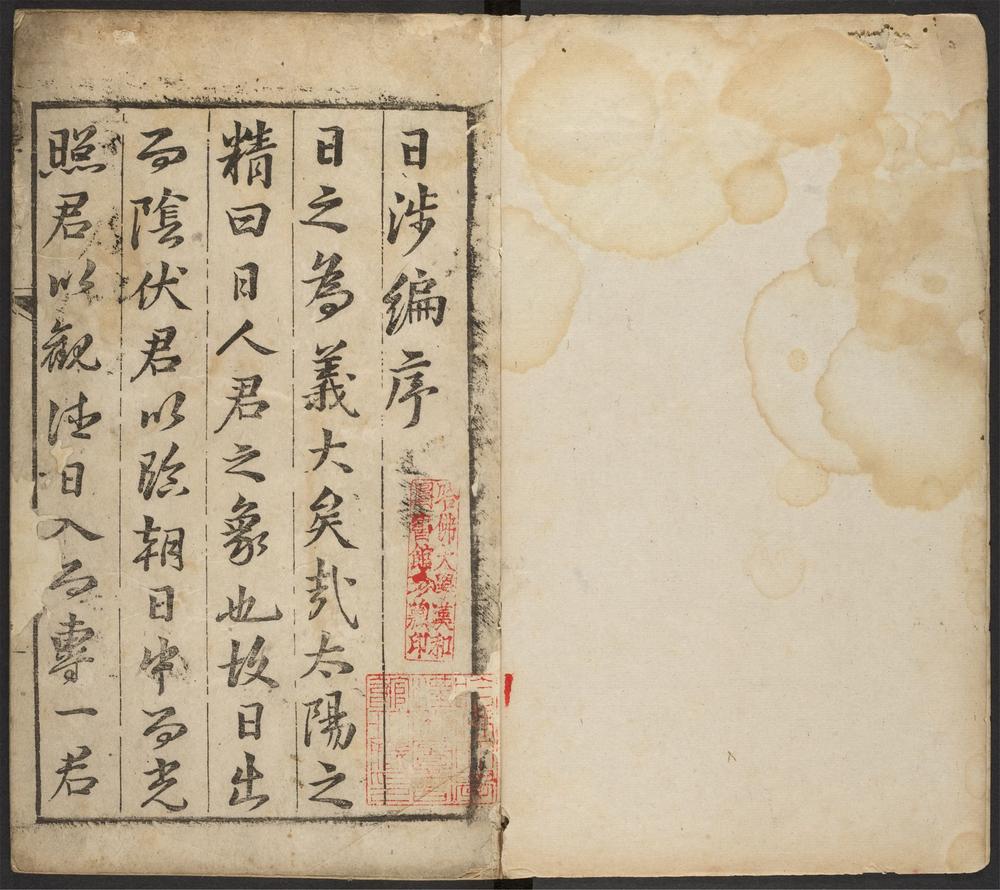 日涉編序
日之為義大矣哉太陽之
精曰日人君之象也故日出
而陰伏君以臨朝日中而光
照君以觀法日入而專一君
哈佛大學漢和
圖書館珍藏印